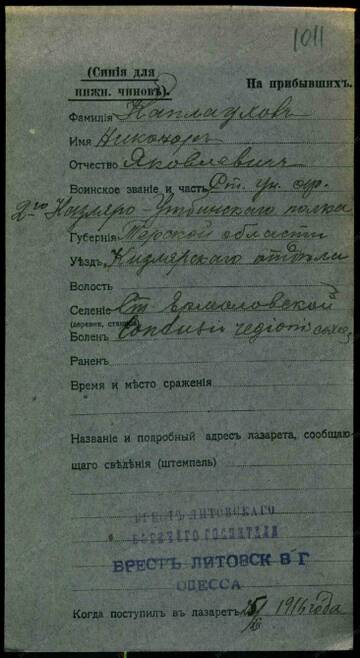 1011
(Синія для
нижн. чиновъ).
На прибывшихъ.
Фамилія Каплауховъ
Имя Никоноръ
Отчество Яковлевичъ
Воинское званіе и часть Ст. ун. оф.
2го Кизляро-Гребенскаго полка
Губернія Терской области
Уѣздъ Кизлярскаго отдѣла
Волость
Селеніе Ст. Ермоловской
(деревня, станица)
Боленъ Contusii regioni
Раненъ
Время и мѣсто сраженія
Названіе и подробный адресъ лазарета, сообщаю-
щаго свѣдѣнія (штемпель)
БРЕСТЪ ЛИТОВСКАГО
БРЕСТЪ ЛИТОВСК В Г
ОДЕССА
Когда поступилъ въ лазаретъ 1916 года